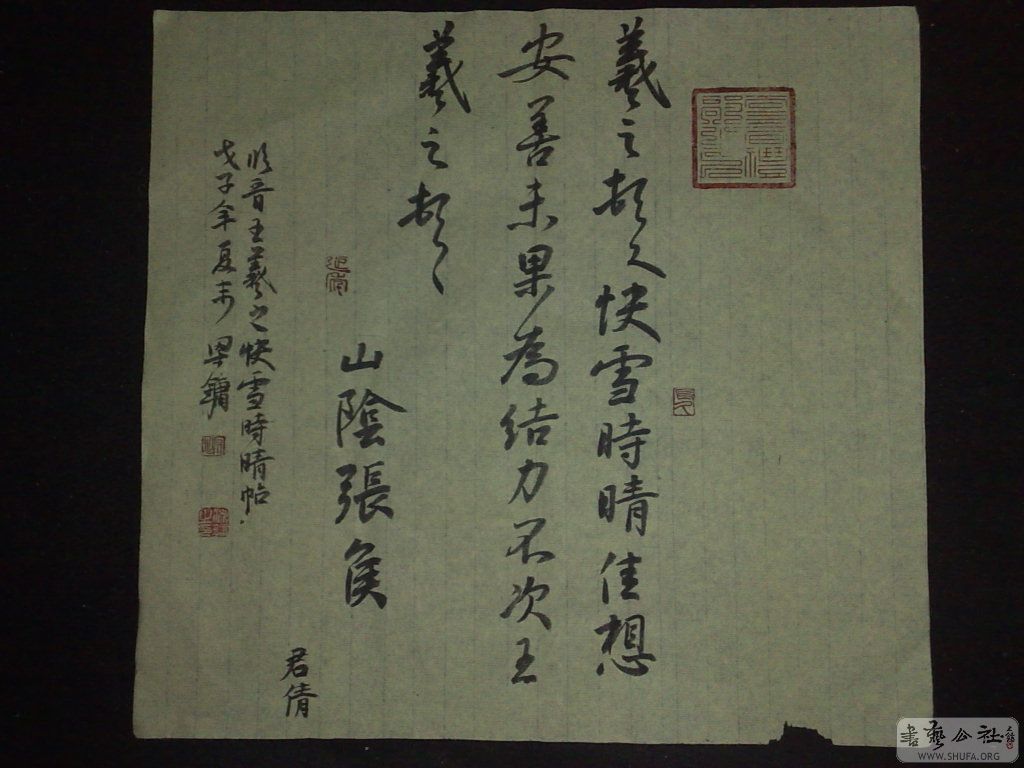 羲之頓首快雪時晴佳想
安善未果為結力不次王
羲之頓首
山陰張侯
君倩
临晋王羲之快雪時晴帖
戊子年夏末 鏞
書藝公社
WWW.SHUFA.ORG